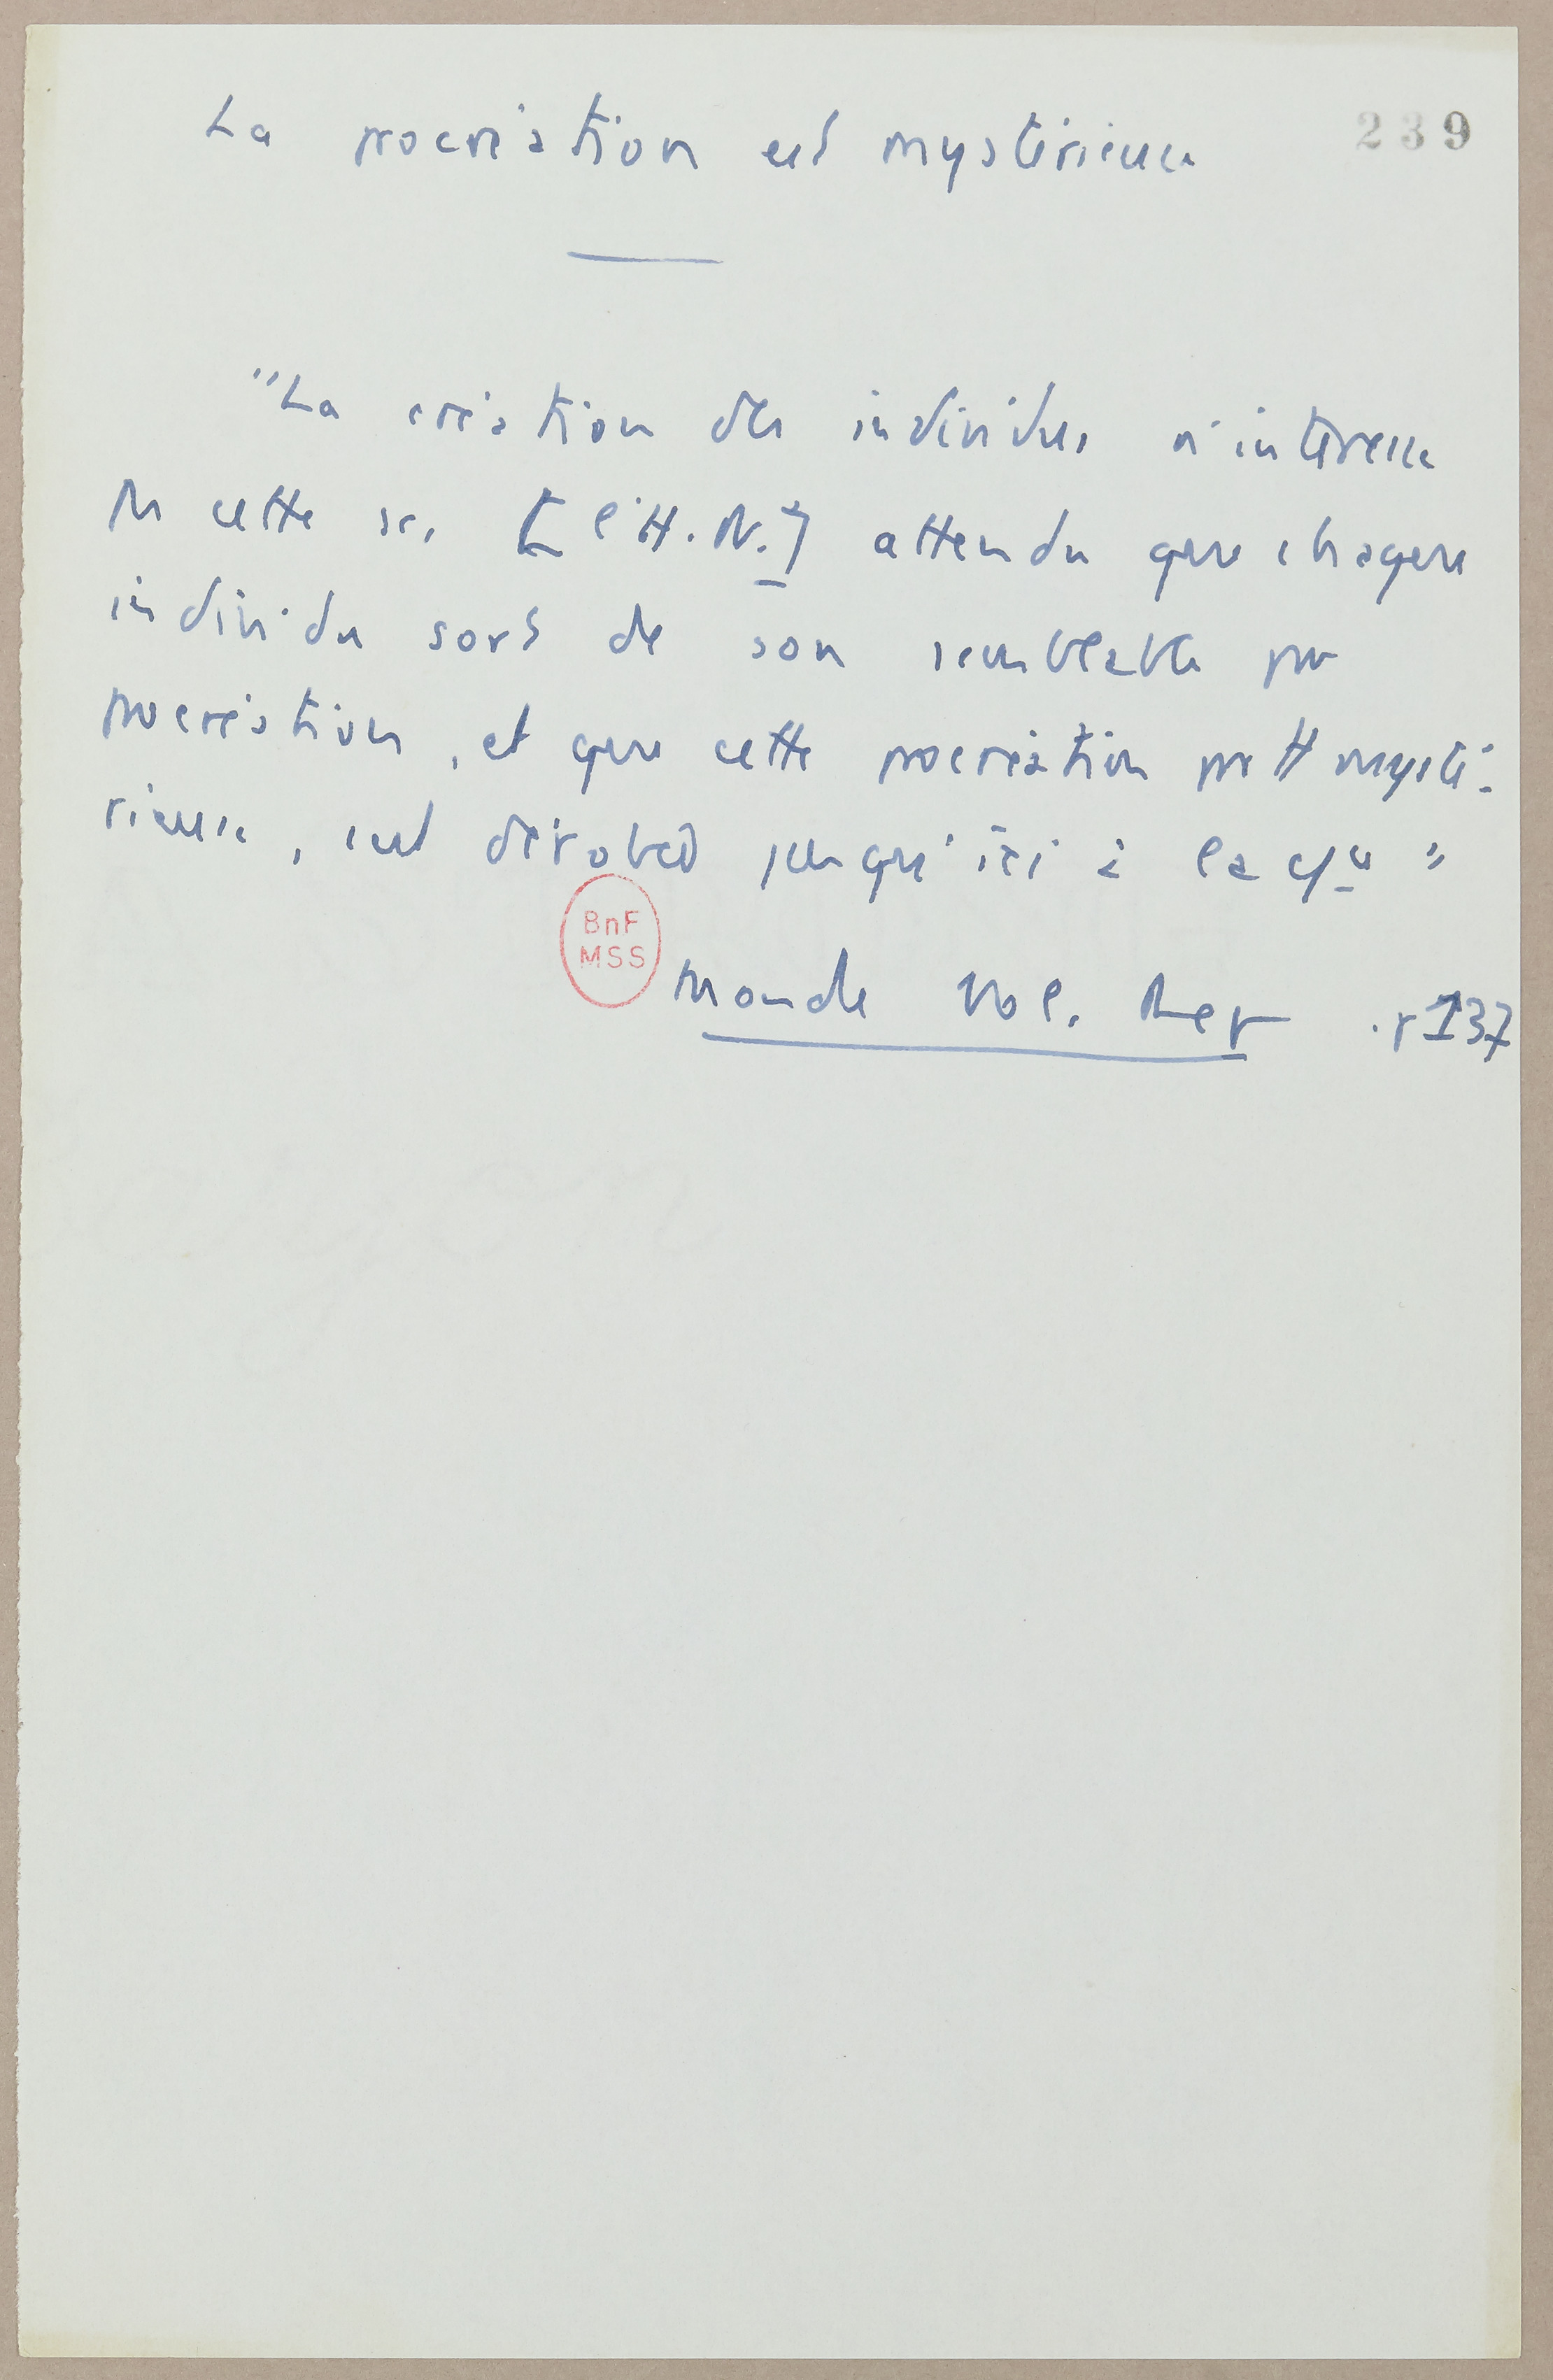 La procréation est mystérieuse
239
"La création des individus n'intéresse
pas cette sc. [l'H.N.] attendu que chaque
individu sort de son semblable par
procréation, et que cette procréation mysté-
rieuse, est dérobée jusqu'ici à la
BnF
MSS
Monde Vol. p 137